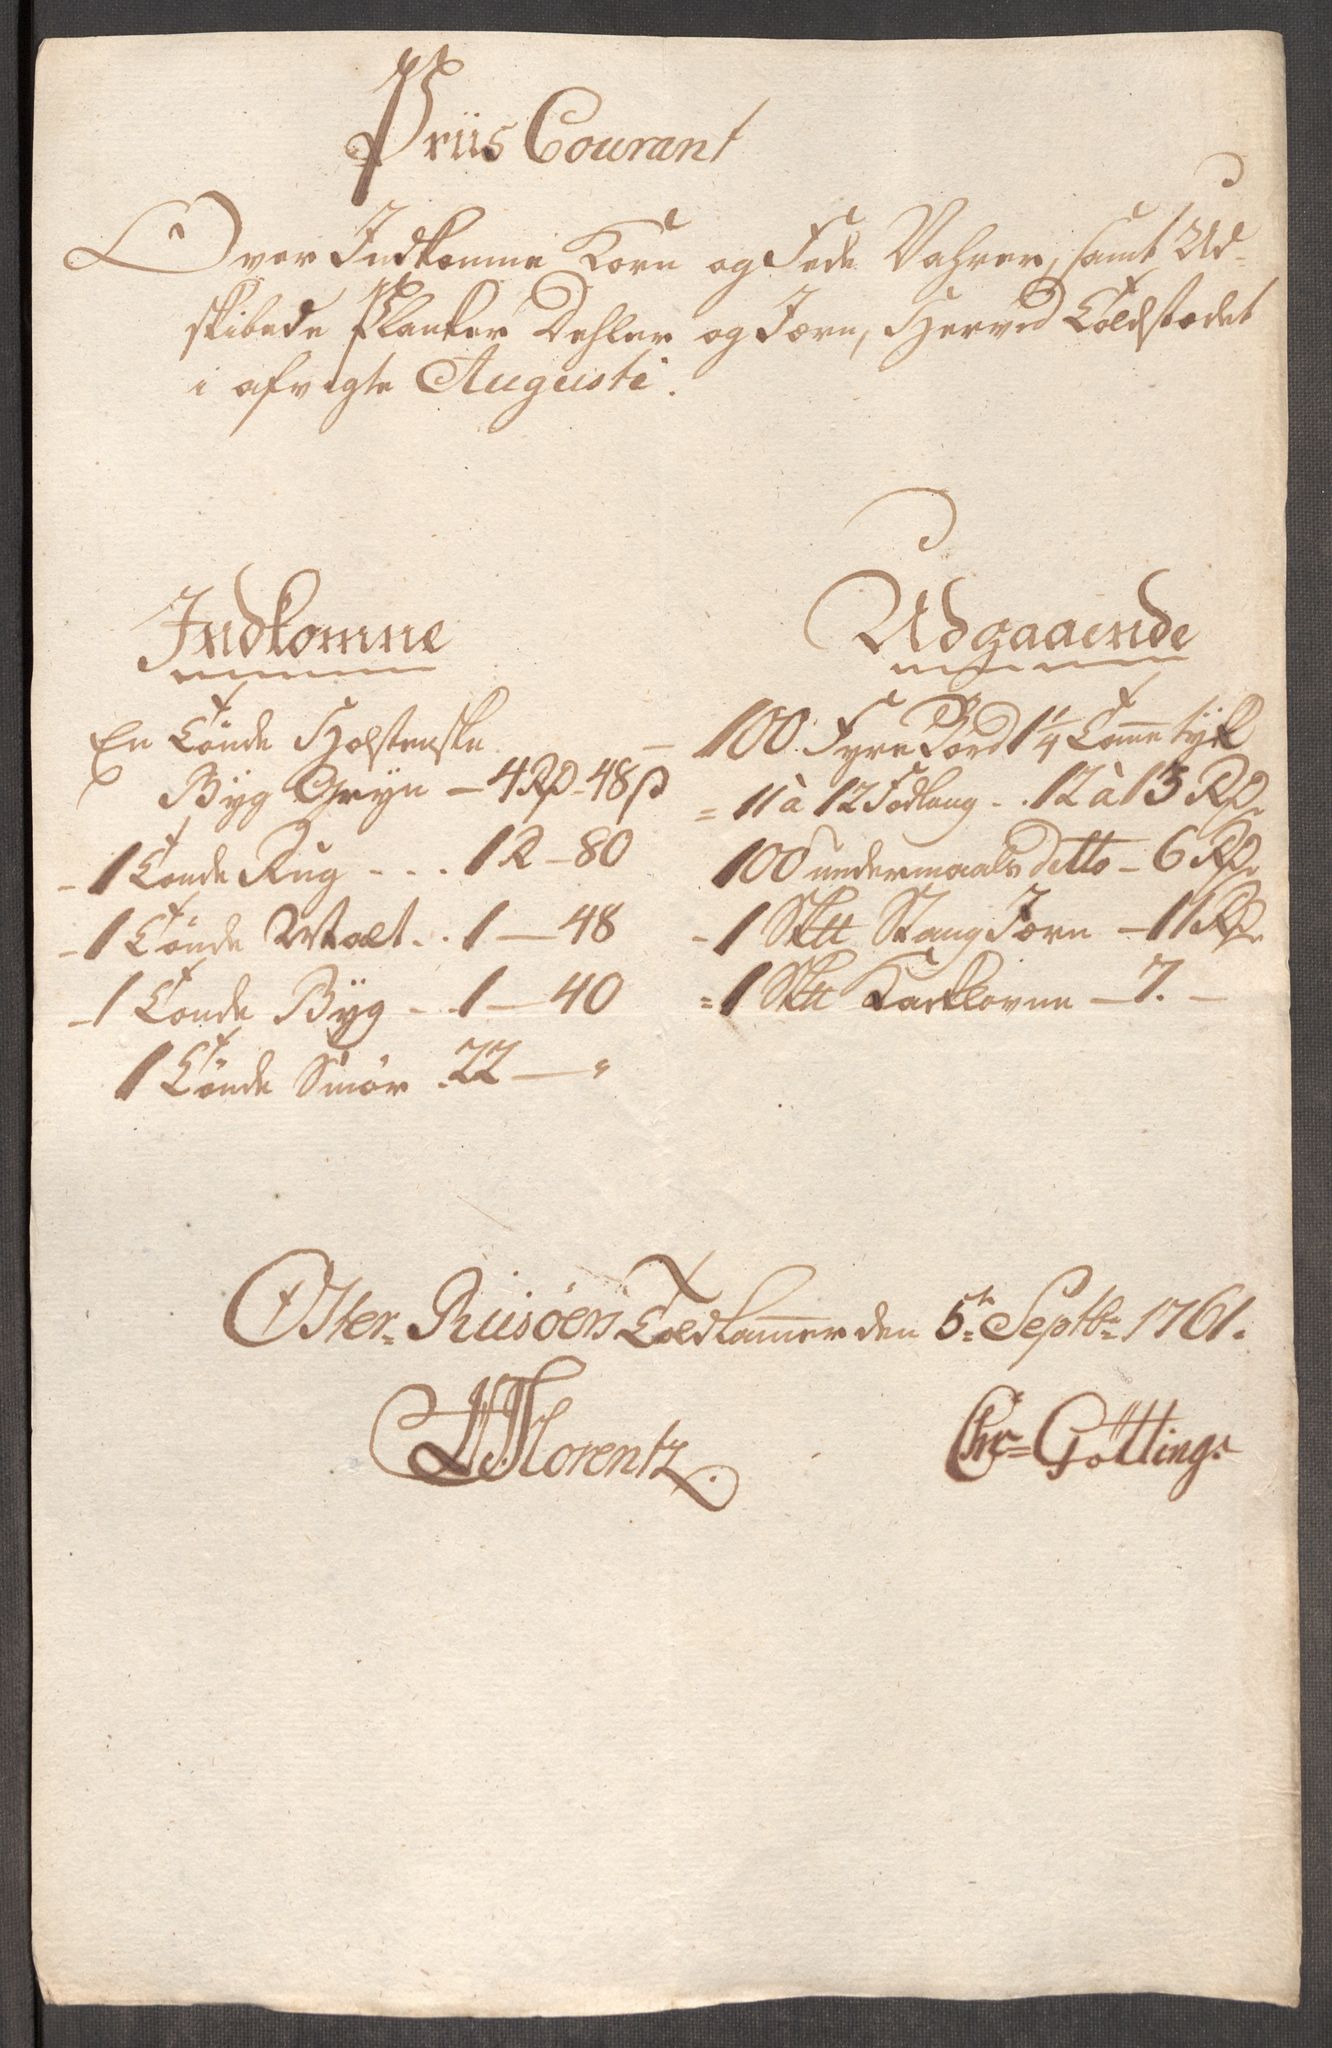 Priis Courant
Over Indkomne Korn og Fede Vahrer, samt Ud-
skibede Planker Dehler og Jern, Herved Toldstædet
i afvigte Augusti.
Indkomne
En Tønde Holstenske
Byg Gryn — 4 Rd - 48 ß
- 1 Tønde Rug - . . . 1 R - 80
- 1 Tønde Malt . . 1 — 48
- 1 Tønde Byg - . . 1 — 40
1 Tønde Smør . 22 — "
Udgaaende
100 Fyre Bord 1 1/4 Tomme tÿk
= 11 à 12 Fod lang - . 12 à 13 Rd.
100 undermaals ditto - 6 Rd.
- 1 Sk℔ Stang Jern — 11 Rd.
= 1 Sk℔ — 7. —
Øster-Riisøers Toldkammer den 5te Septbr 1761.
Florentz. Chr= Gøtting.